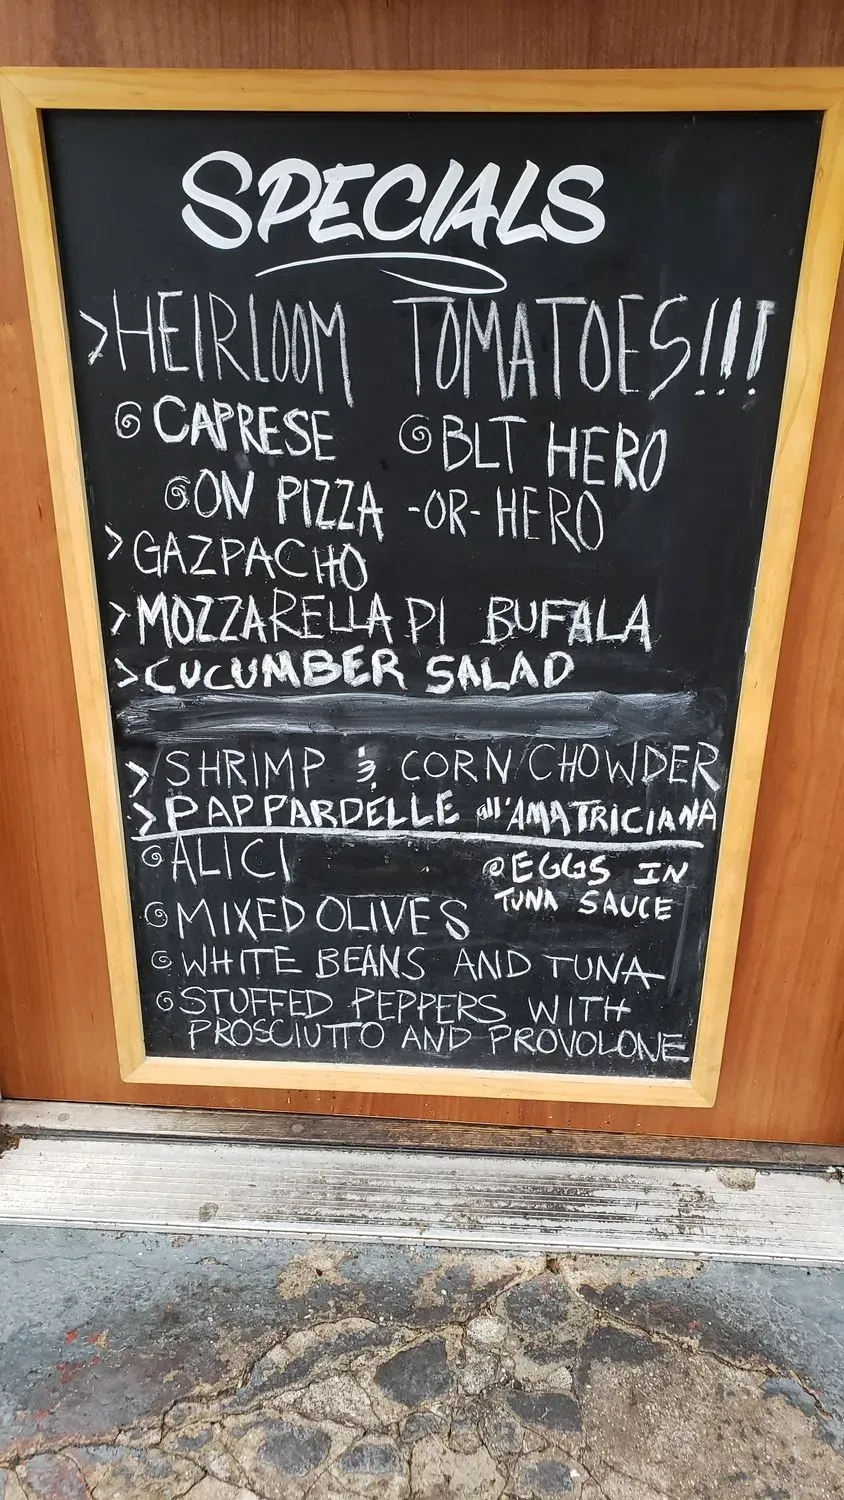 SPECIALS
>HEIRLOOM TOMATOES!!!
@CAPRESE @BLT HERO
@ON PIZZA -OR- HERO
>GAZPACHO
>MOZZARELLA PI BUFALA
>CUCUMBER SALAD
>SHRIMP & CORN CHOWDER
>PAPPARDELLE all'AMATRICIANA
@ALICI
@EGGS IN
TUNA SAUCE
@MIXED OLIVES
@WHITE BEANS AND TUNA
@STUFFED PEPPERS WITH
PROSCIUTTO AND PROVOLONE